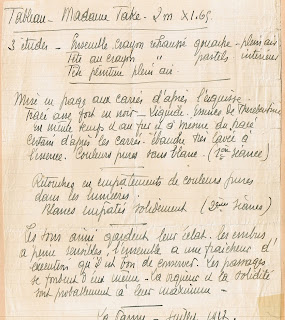 Tableau - Madame Take - 2m X 1.65.
3 études - Ensemble crayon rehaussé gouache - plein air
Tête au crayon " pastels intérieur
Tête peinture plein air.
Mise en page aux carrés d'après l'esquisse
Trait avec ton en noir - liquide - imbibé de Thérébentine
en même temps et au fur et à mesure du tracé
Dessin d'après les carrés. Ebauche très lavée à
l'essence. Couleurs pures sans blanc - (1ère séance)
Retouches en empatements de couleurs pures
dans les lumières
Blancs empatés solidement (2ème séances)
Les tons ainsi gardent leur éclat. les embus
à peine sensibles, l'ensemble a une fraîcheur d'
exécution qu'il est bon de conserver. Les passages
se fondent d'eux même - la vigueur et la solidité
sont probablement à leur maximum -
Juillet